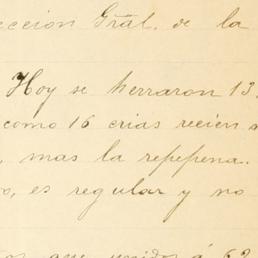 ección Gral. de la
Hoy se herraron 13
como 16 crias recien
, mas la repepena.
o, es regular y no
que unidos á 62